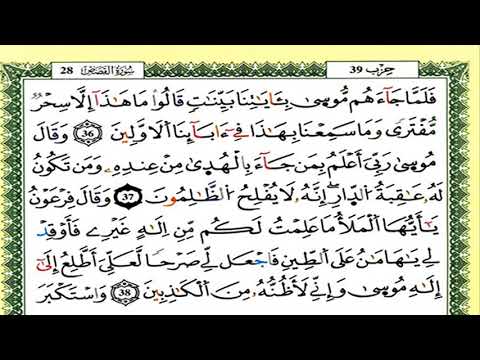 سُورَةُ الْقَصَصِ 28
حِزْب 39
فَلَمَّا جَآءَهُم مُّوسَىٰ بِـَٔايَـٰتِنَا بَيِّنَـٰتٍ قَالُوا مَا هَـٰذَآ إِلَّا سِحْرٌ
مُّفْتَرًى وَمَا سَمِعْنَا بِهَـٰذَا فِىٓ ءَابَآئِنَا ٱلْأَوَّلِينَ 36 وَقَالَ
مُوسَىٰ رَبِّىَ أَعْلَمُ بِمَن جَآءَ بِالْهُدَىٰ مِنْ عِندِهِۦ وَمَن تَكُونُ
لَهُۥ عَـٰقِبَةُ ٱلدِّارِ إِنَّهُۥ لَا يُفْلِحُ ٱلظَّـٰلِمُونَ 37 وَقَالَ فِرْعَوْنُ
يَـٰٓأَيُّهَا ٱلْمَلَأُ مَا عَلِمْتُ لَكُم مِّنْ إِلَـٰهٍ غَيْرِى فَأَوْقِدْ
لِى يَـٰهَـٰمَـٰنُ عَلَى ٱلطِّينِ فَاجْعَل لِّى صَرْحًا لَّعَلِّىٓ أَطَّلِعُ إِلَىٰٓ
إِلَـٰهِ مُوسَىٰ وَإِنِّى لَأَظُنُّهُۥ مِنَ ٱلْكَـٰذِبِينَ 38 وَٱسْتَكْبَرَ